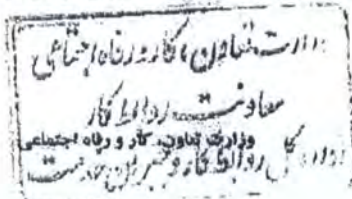 وزارت تعاون، کار و رفاه اجتماعی
معاونت روابط کار
وزارت تعاون، کار و رفاه اجتماعی
اداره کل روابط کار و جبران خدمت